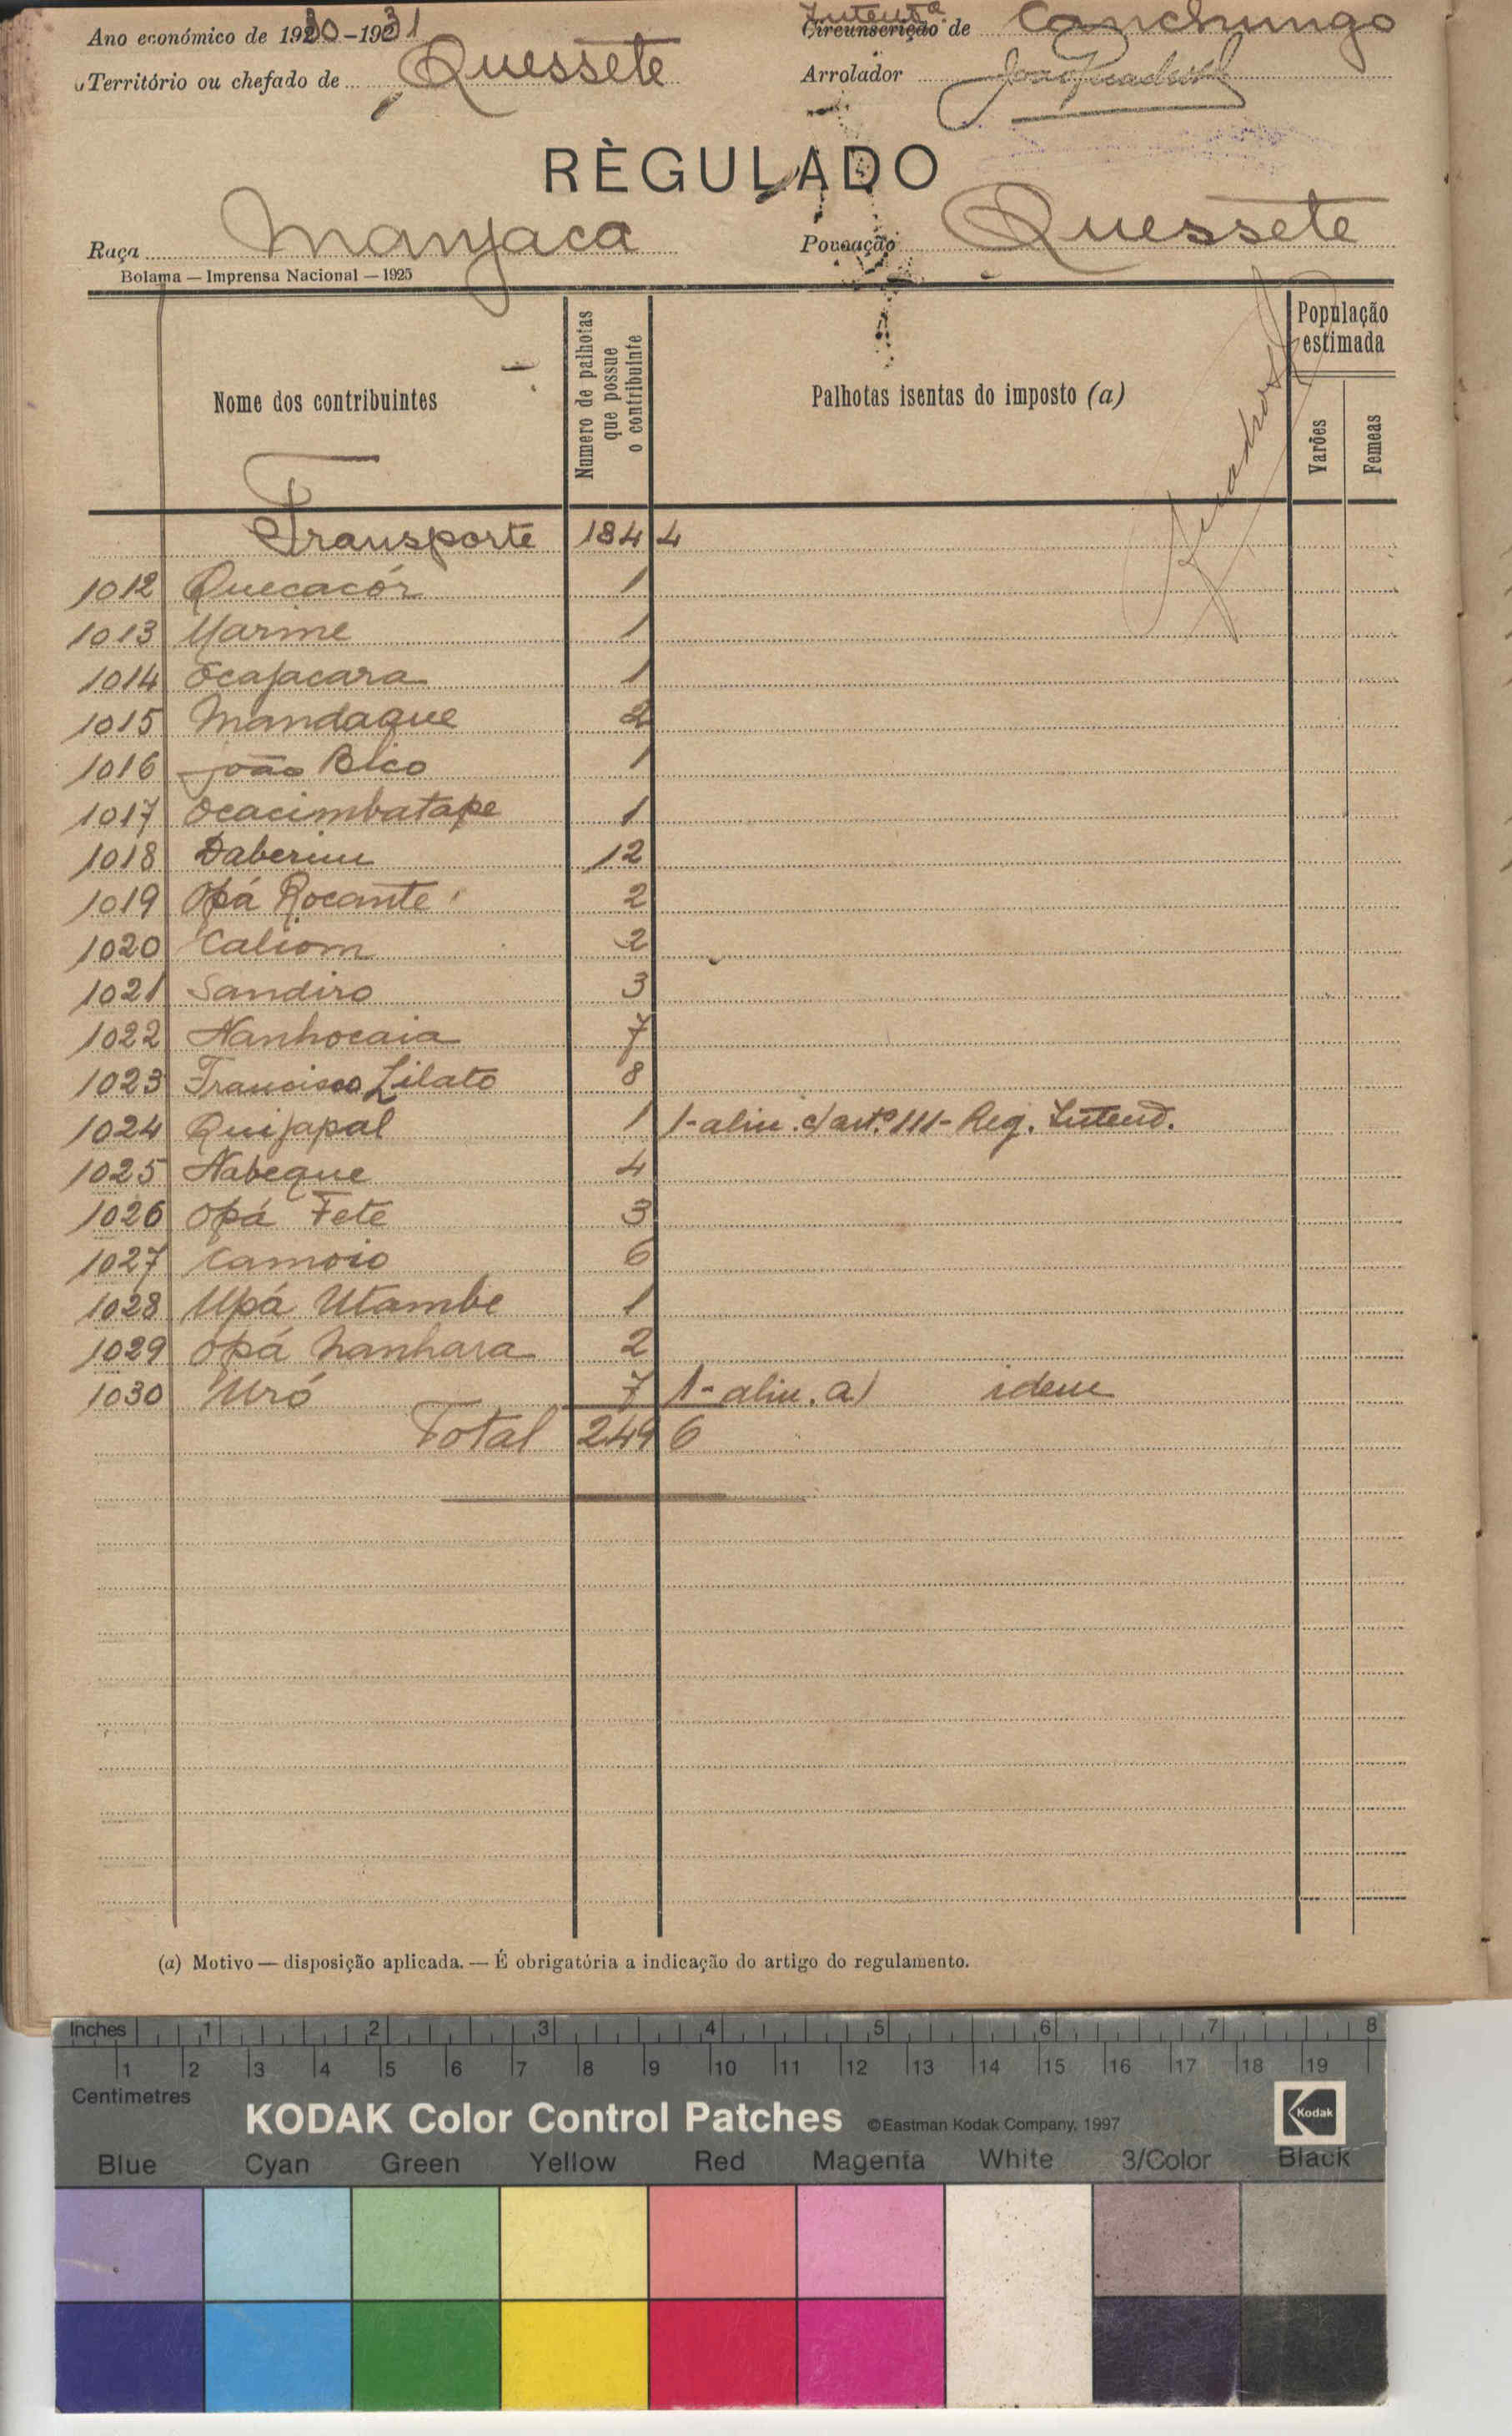 Ano económico de 1930-1931 Intend.ª Circunscrição de Canchungo
Território ou chefado de Quessete Arrolador
RÈGULADO
Raça Manjaca Povoação Quessete
Bolama — Imprensa Nacional — 1925
Nome dos contribuintes
Numero de palhotas que possue o contribuinte
Palhotas isentas do imposto (a)
População estimada
Varões
Femeas
Transporte 184 4
1012 Quecacór 1
1013 Marme 1
1014 Ocajacara 1
1015 Mandaque 2
1016 João Bico 1
1017 Ocacimbatape 1
1018 Daberim 12
1019 Opá Rocante 2
1020 Caliom 2
1021 Sandiro 3
1022 Nanhocaia 7
1023 Francisco Lilato 8
1024 Quijapal 1 1-alin. c/ art.º 111- Reg. Intend.
1025 Nabeque 4
1026 Opá Fete 3
1027 Camoio 6
1028 Upá Utambe 1
1029 Opá Nanhara 2
1030 Uró 7 1-alin. a) idem
Total 249 6
(a) Motivo — disposição aplicada. — É obrigatória a indicação do artigo do regulamento.
Inches 1 2 3 4 5 6 7 8
1 2 3 4 5 6 7 8 9 10 11 12 13 14 15 16 17 18 19
Centimetres
KODAK Color Control Patches ©Eastman Kodak Company, 1997 Kodak
Blue Cyan Green Yellow Red Magenta White 3/Color Black